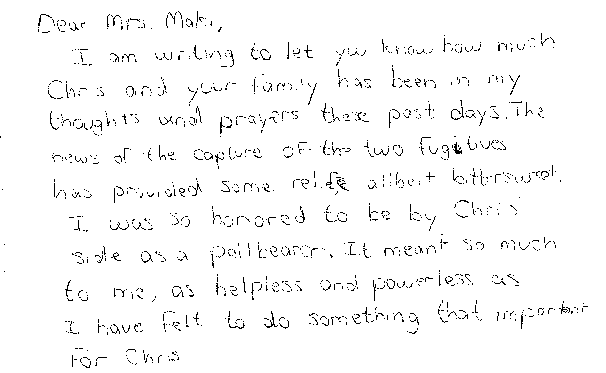 Dear Mrs. Maki,
I am writing to let you know how much
Chris and your family has been in my
thoughts and prayers these past days. The
news of the capture of the two fugitives
has provided some relief albeit bittersweet.
I was so honored to be by Chris'
side as a pallbearer. It meant so much
to me, as helpless and powerless as
I have felt to do something that important
for Chris